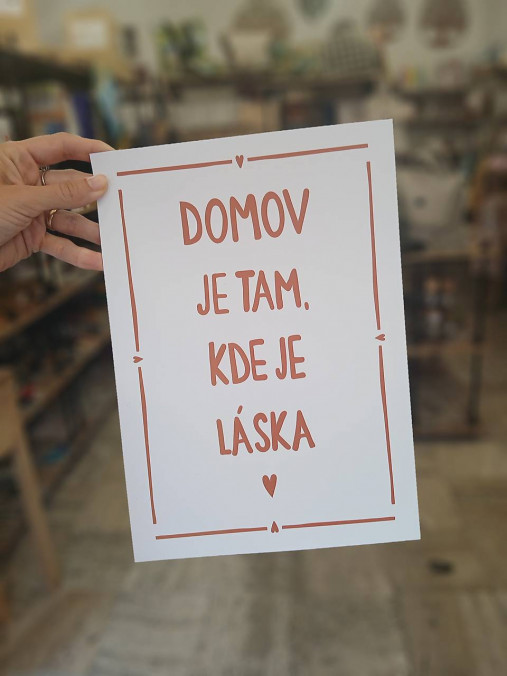 DOMOV
JE TAM,
KDE JE
LÁSKA